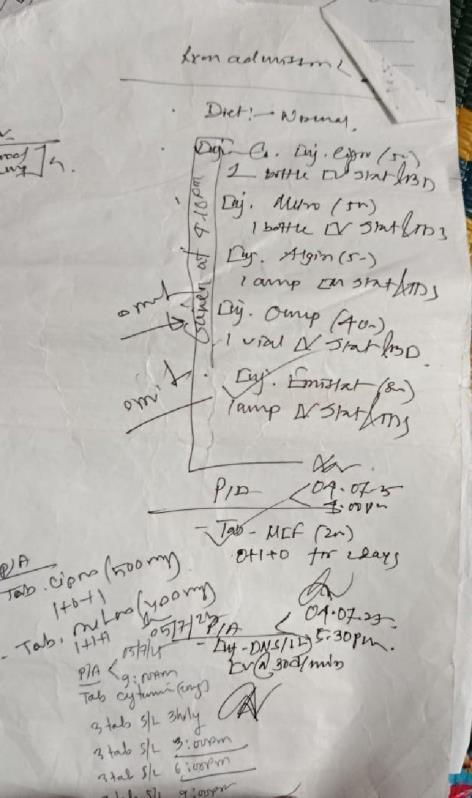 from admission
Diet:- Normal.
Inj.
1 bottle IV stat & BD
Inj. Metro
1 bottle IV stat & TDS
Inj. Algin (5-)
1 amp IM stat & TDS
Inj. Omep (40-)
1 vial IV stat & BD.
Inj. Emistat (8-)
1 amp IV stat & TDS
Given at 4:10pm
omit
omit
04.07.25
P/A
- Tab - MCF
0+1+0 for 2 days
P/A
Tab. cipro (500mg)
1+0+1
- Tab. metro (400mg)
1+1+1
04.07.25
5.30pm.
05/7/25
P/A
- Inj - DNS/1L
IV @ 30d/min
P/A 05/7/25
9:00AM
Tab
3 tab S/L 3hrly
3 tab S/L 3:00pm
3 tab S/L 6:00pm
S/L 9:00pm